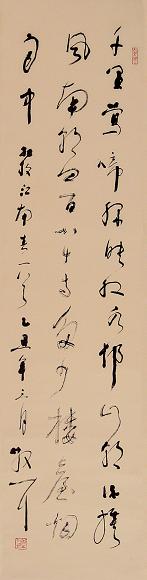 千里莺啼绿映红水村山郭酒旗
风南朝四百八十寺多少楼台烟
雨中 杜牧江南春一首 乙丑年六月